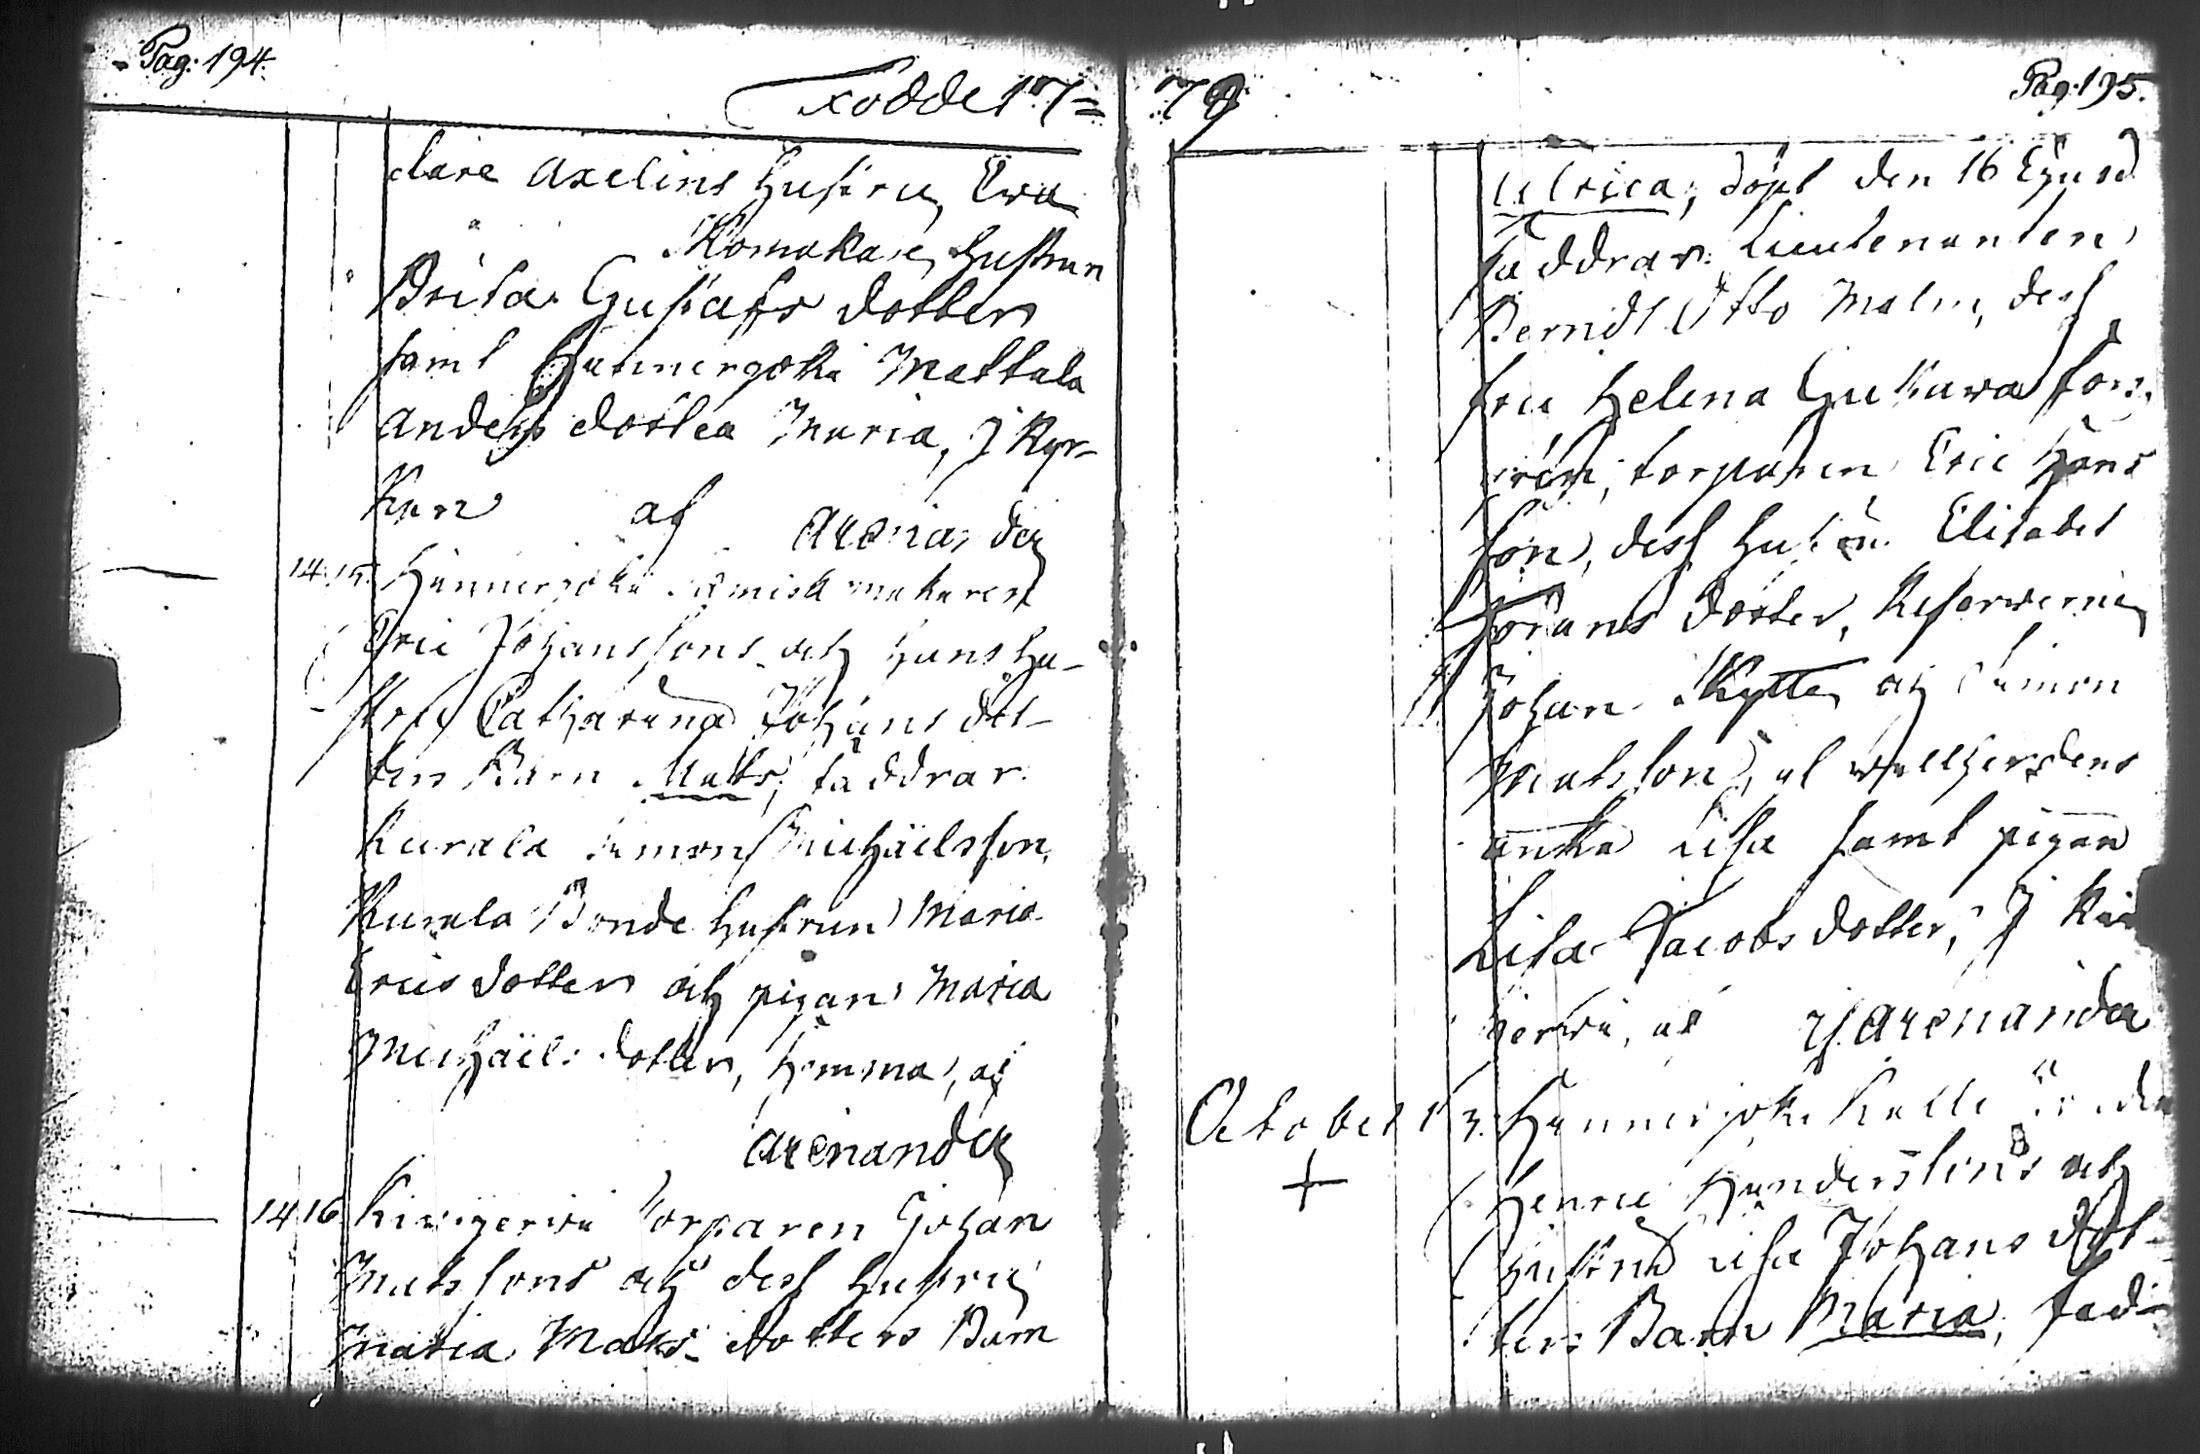 Pag: 194.
Födde 17=
dare Axelins hustru, Ewa
Skomakare hustrun
Brita Gustafs dotter
samt Hannerjoki Mattala
Anders dotter Maria, J Kyr-
kan af Arenander
14 15 Hannerjoki makaren
Eric Johanssons och hans hu-
stru Catharina Johans dot-
ters Barn Matts, faddrar
Kurala Simon Michäelsson,
Kurala Bonde hustrun Maria
Erics dotter och pigan Maria
Michäels dotter, hemma, af
Arenander
14 16 Kirvijerwi torparen Johan
Matssons och dess hustru
Maria Mats dotters Barn
79
Pag. 195.
Ulrica, döpt den 16 Ejusd
faddrar: Lieutenanten
Berndt Otto Malm, dess
fru Helena Gustawa
torparen Eric Hans
son, dess hustru Elisabet
Görans dotter, Reserwerne
Johan Skytte och Simon
Matsson, wallherdens
änka Lisa samt pigan
Lisa Jacobs dotter, J Kir
jerwi, af J. Arenander
October 1 3. Hannerjoki Kalli
Henric Hendersson's och
hustru Lisa Johans dot-
ters Barn Maria, fad-